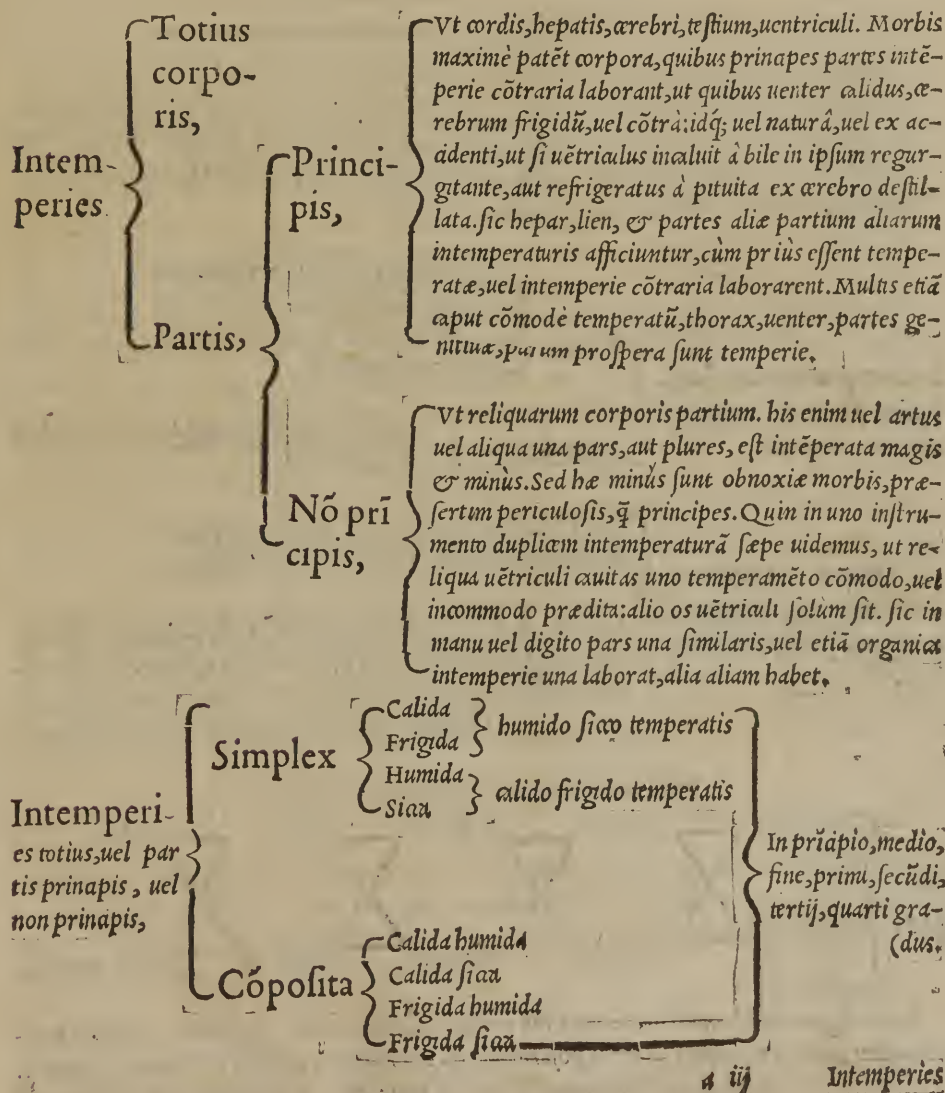 Intem-
peries
Totius
corpo-
ris,
Partis,
Princi-
pis,
Vt cordis, hepatis, cerebri, testium, uentriculi. Morbis
maximè patẽt corpora, quibus principes partes intẽ-
perie cõtraria laborant, ut quibus uenter calidus, ce-
rebrum frigidũ, uel cõtrà: idq́; uel naturâ, uel ex ac-
cidenti, ut si uẽtriculus incaluit à bile in ipsum regur-
gitante, aut refrigeratus à pituita ex cerebro destil-
lata. sic hepar, lien, & partes aliæ partium aliarum
intemperaturis afficiuntur, cùm priùs essent tempe-
ratæ, uel intemperie cõtraria laborarent. Multis etiã
caput cõmodè temperatũ, thorax, uenter, partes ge-
nitiuæ, parum prospera sunt temperie.
Nõ prī
cipis,
Vt reliquarum corporis partium. his enim uel artus
uel aliqua una pars, aut plures, est intẽperata magis
& minùs. Sed hæ minùs sunt obnoxiæ morbis, præ-
sertim periculosis, q̃ principes. Quin in uno instru-
mento duplicem intemperaturã sæpe uidemus, ut re-
liqua uẽtriculi cauitas uno temperamẽto cõmodo, uel
incommodo prædita: alio os uẽtriculi solum sit. sic in
manu uel digito pars una similaris, uel etiã organica
intemperie una laborat, alia aliam habet.
Intemperi-
es totius, uel par
tis principis, uel
non principis,
Simplex
Calida
Frigida
humido sicco temperatis
Humida
Sicca
calido frigido temperatis
Cõposita
Calida humida
Calida sicca
Frigida humida
Frigida sicca
In prĩcipio, medio,
fine, primi, secũdi,
tertij, quarti gra-
(dus.
a iij Intemperies